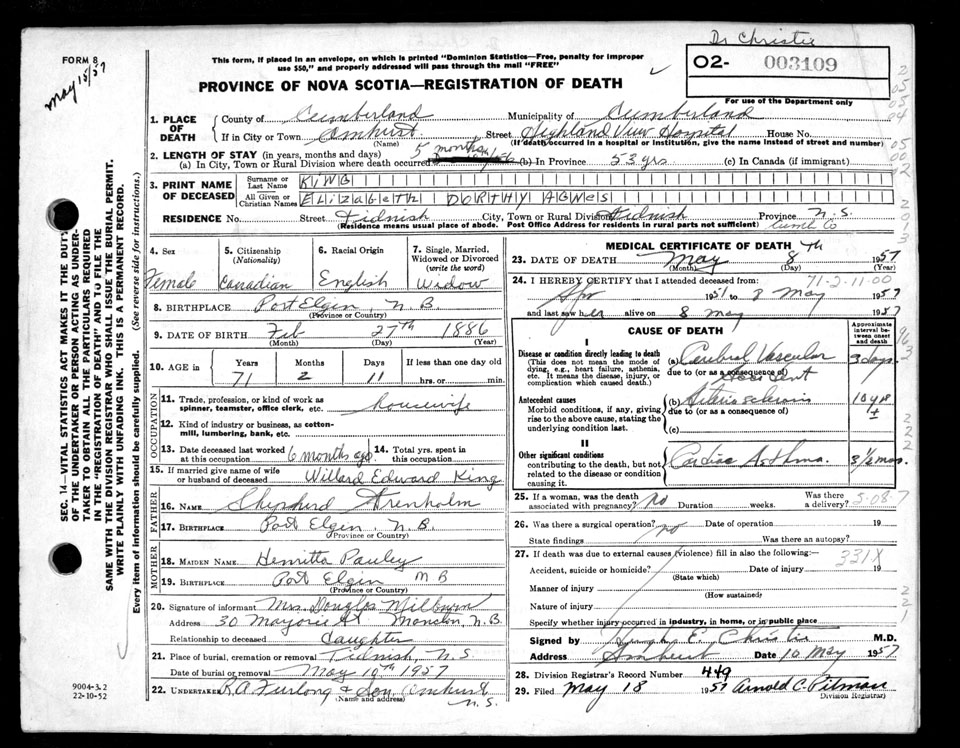 FORM 8
May 15/57
Dr Christie
This form, if placed in an envelope, on which is printed "Dominion Statistics—Free, penalty for improper
use $50," and properly addressed will pass through the mail "FREE"
PROVINCE OF NOVA SCOTIA—REGISTRATION OF DEATH
02- 003109
For use of the Department only
1. PLACE OF DEATH
County of Cumberland Municipality of Cumberland
If in City or Town Amherst Street Highland View Hospital House No.
(Name) (If death occurred in a hospital or institution, give the name instead of street and number)
2. LENGTH OF STAY (in years, months and days)
(a) In City, Town or Rural Division where death occurred 5 months (b) In Province 53 yrs (c) In Canada (if immigrant)
3. PRINT NAME OF DECEASED
Surname or Last Name KING
All Given or Christian Names ELIZABETH DORTHY AGNES
RESIDENCE No. Street Tidnish City, Town or Rural Division Tidnish Province N.S.
(Residence means usual place of abode. Post Office Address for residents in rural parts not sufficient) Cumb Co
4. Sex Female
5. Citizenship (Nationality) Canadian
6. Racial Origin English
7. Single, Married, Widowed or Divorced (write the word) Widow
8. BIRTHPLACE Port Elgin, N.B
(Province or Country)
9. DATE OF BIRTH Feb 27th 1886
(Month) (Day) (Year)
10. AGE in Years Months Days If less than one day old
71 2 11 hrs. or min.
OCCUPATION
11. Trade, profession, or kind of work as
spinner, teamster, office clerk, etc. housewife
12. Kind of industry or business, as cotton-
mill, lumbering, bank, etc.
13. Date deceased last worked at this occupation 6 months ago
14. Total yrs. spent in this occupation
15. If married give name of wife
or husband of deceased Willard Edward King
FATHER
16. NAME Shepherd Trenholm
17. BIRTHPLACE Port Elgin, N.B.
(Province or Country)
MOTHER
18. MAIDEN NAME Henritta Pauley
19. BIRTHPLACE Port Elgin N B
(Province or Country)
20. Signature of informant Mrs. Douglas Milburn
Address 30 Marjorie St Moncton, N.B.
Relationship to deceased daughter
21. Place of burial, cremation or removal Tidnish, N.S.
Date of burial or removal May 10th 1957
22. UNDERTAKER R.A. Furlong & Son, Amherst
(Name and address) N.S.
MEDICAL CERTIFICATE OF DEATH
23. DATE OF DEATH May 8 th 1957
(Month) (Day) (Year)
24. I HEREBY CERTIFY that I attended deceased from: 71-2-11-00
Apr 1951 to 8 May 1957
and last saw her alive on 8 May 1957
CAUSE OF DEATH
Approximate interval between onset and death
I
Disease or condition directly leading to death
(This does not mean the mode of dying, e.g., heart failure, asthenia, etc. It means the disease, injury, or complication which caused death.)
(a) Cerebral Vascular Accident 3 days
due to (or as a consequence of)
Antecedent causes
Morbid conditions, if any, giving rise to the above cause, stating the underlying condition last.
(b) Arteriosclerosis 10 yrs ±
due to (or as a consequence of)
(c)
II
Other significant conditions
contributing to the death, but not related to the disease or condition causing it.
Cardiac Asthma. 3½ mos.
25. If a woman, was the death associated with pregnancy? no Duration weeks. Was there a delivery? 5-08-7
26. Was there a surgical operation? no Date of operation 19
State findings Was there an autopsy?
27. If death was due to external causes (violence) fill in also the following:— 331X
Accident, suicide or homicide? Date of injury 19
(State which)
Manner of injury
(How sustained)
Nature of injury
Specify whether injury occurred in industry, in home, or in public place
Signed by Hugh E. Christie M.D.
Address Amherst Date 10 May 1957
28. Division Registrar's Record Number 449
29. Filed May 18 1957 Arnold C. Pitman
(Division Registrar)
SEC. 14—VITAL STATISTICS ACT MAKES IT THE DUTY
OF THE UNDERTAKER OR PERSON ACTING AS UNDER-
TAKER TO OBTAIN ALL THE PARTICULARS REQUIRED
IN THE "REGISTRATION OF DEATH" AND TO FILE THE
SAME WITH THE DIVISION REGISTRAR WHO SHALL ISSUE THE BURIAL PERMIT.
WRITE PLAINLY WITH UNFADING INK. THIS IS A PERMANENT RECORD.
Every item of information should be carefully supplied. (See reverse side for instructions.)
9004-3.2
22-10-52